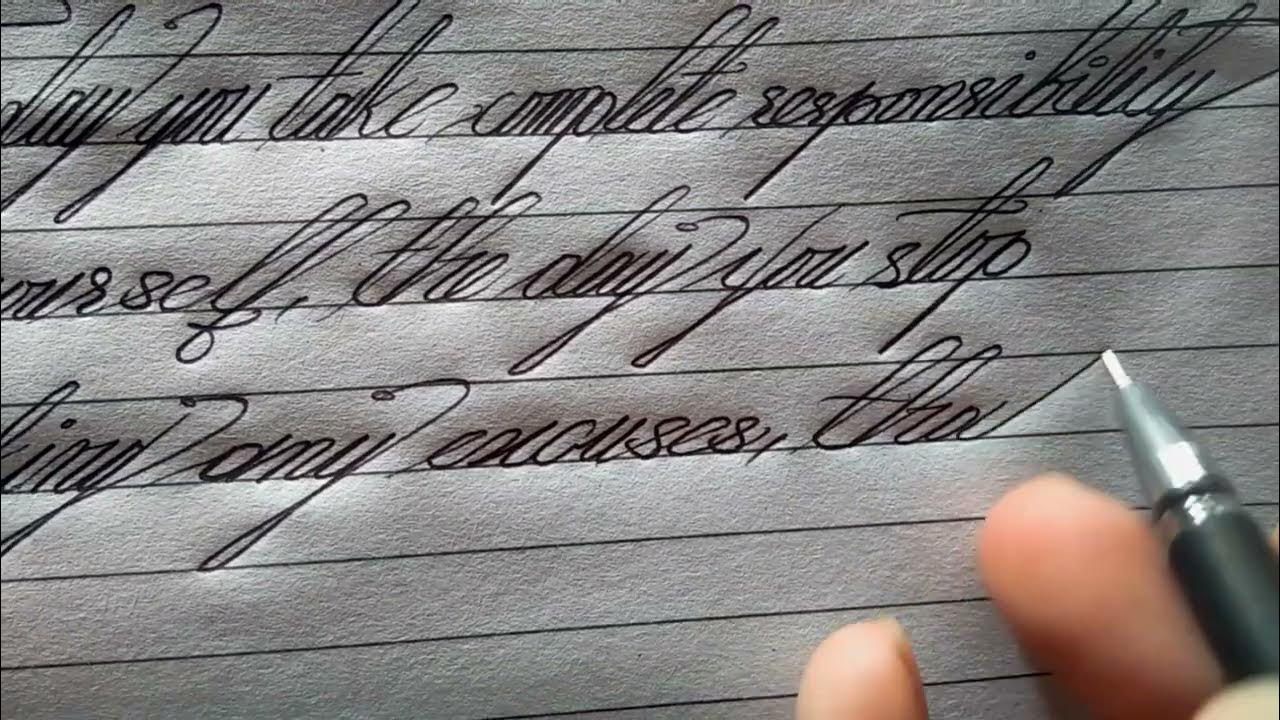 day you take complete responsibility
ourself, the day you stop
king any excuses, tha